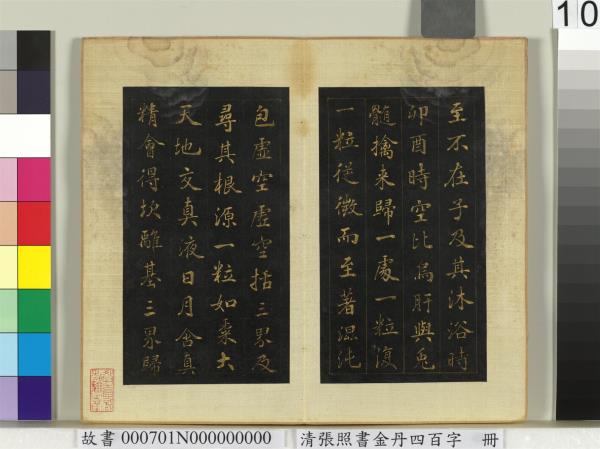 10
至不在子及其沐浴時
卯酉時空比烏肝與兔
髓擒來歸一處一粒復
一粒從微而至著混沌
包虛空虛空括三界及
尋其根源一粒如黍大
天地交真液日月含真
精會得坎離基三界歸
故書 000701N000000000 清張照書金丹四百字 冊